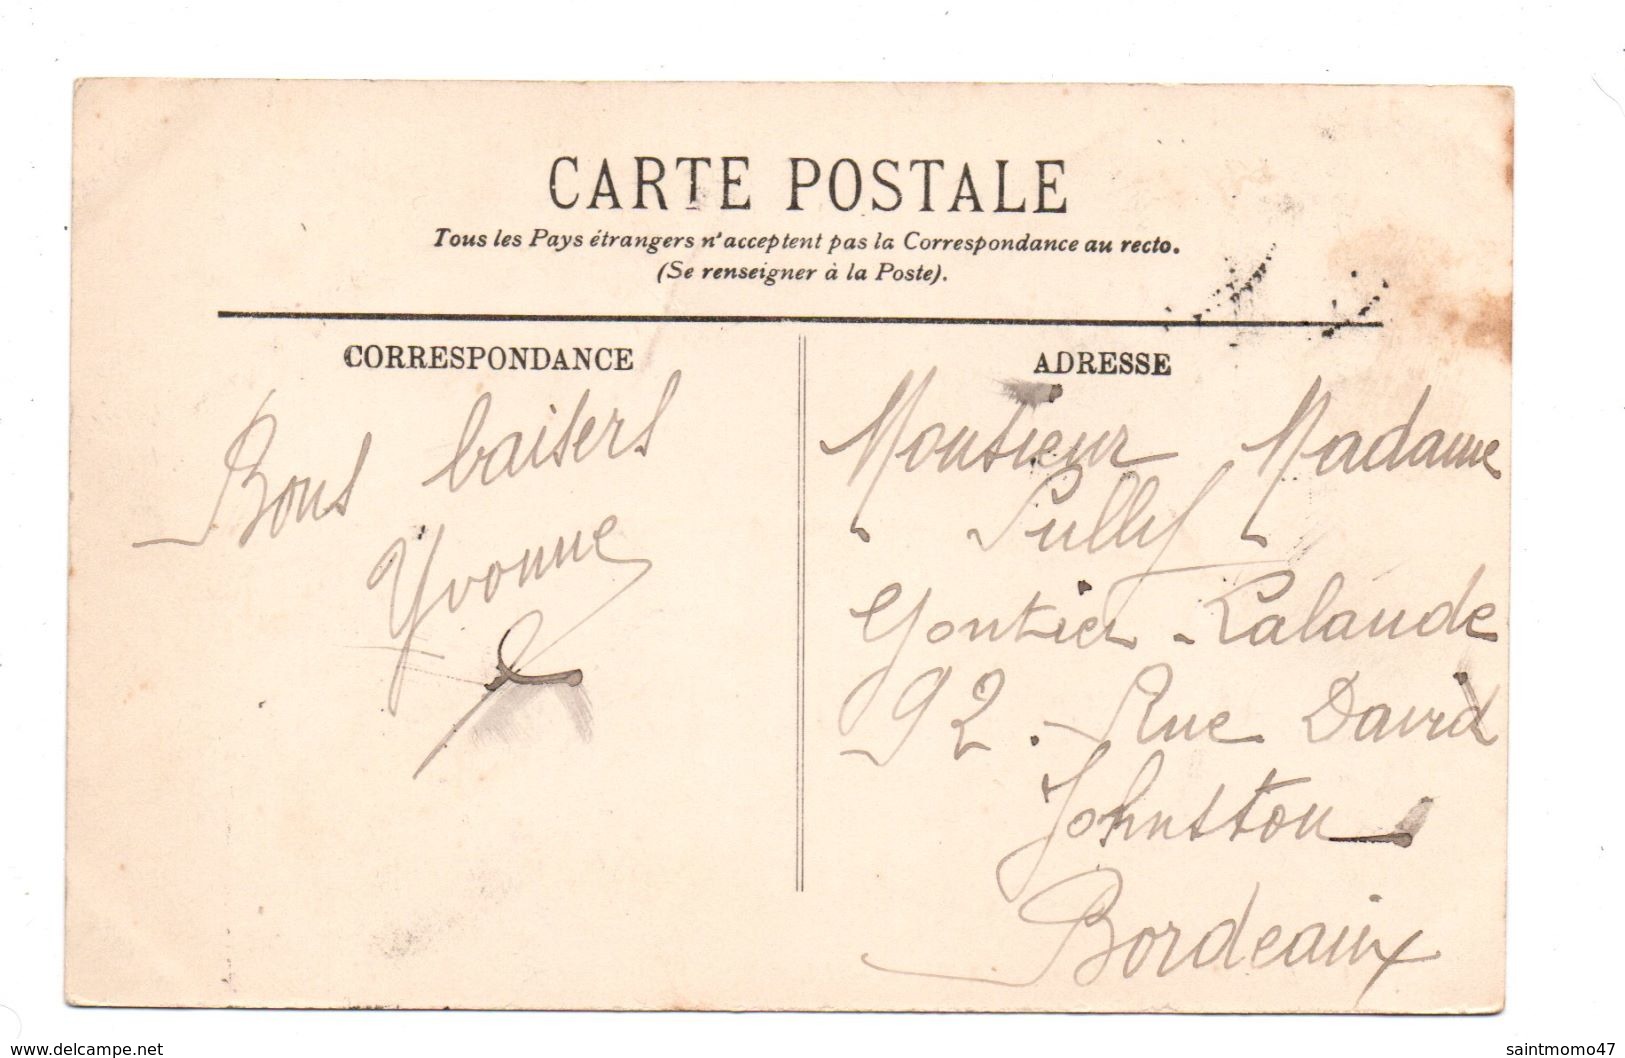 CARTE POSTALE
Tous les Pays étrangers n'acceptent pas la Correspondance au recto.
(Se renseigner à la Poste).
CORRESPONDANCE
Bons baisers
Yvonne
ADRESSE
Monsieur Madame
Sully
Gontier-Lalande
92. Rue David
Johnston
Bordeaux
www.delcampe.net
saintmomo47